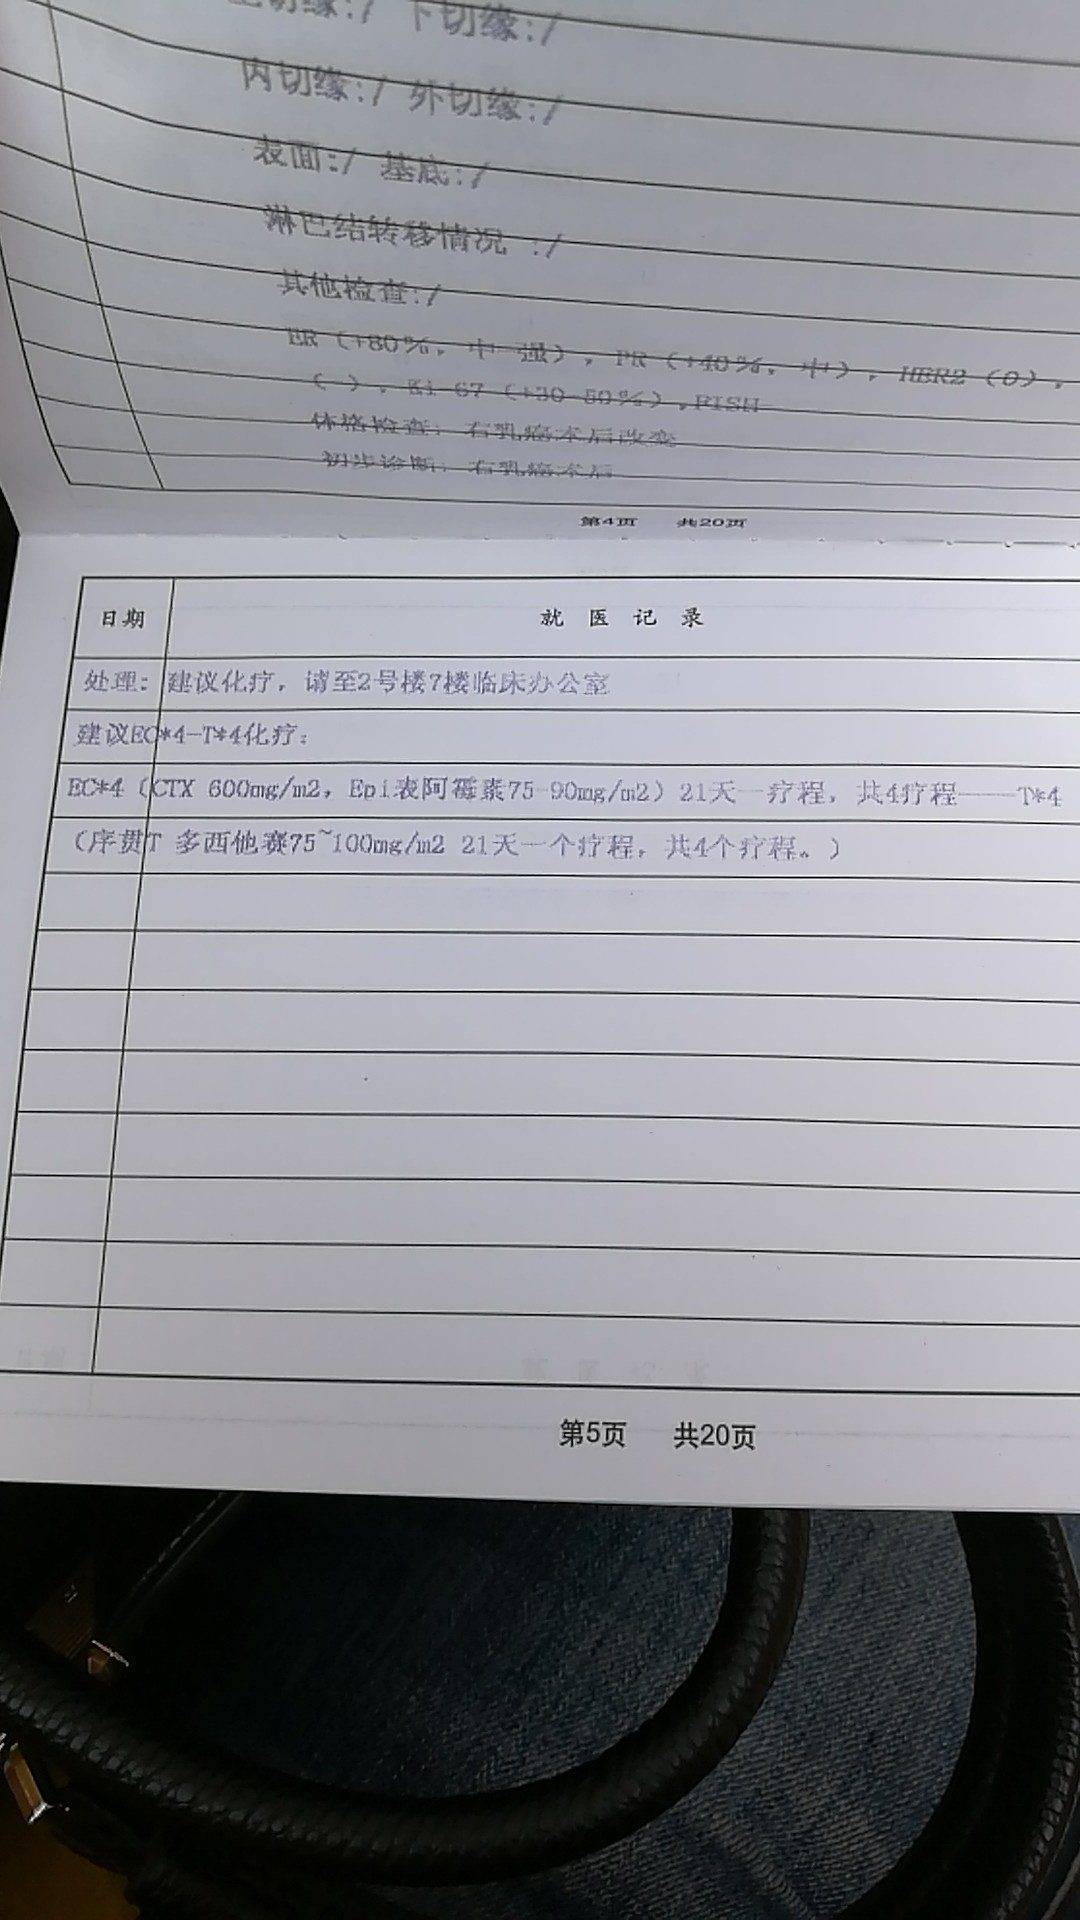 下切缘:/
内切缘:/ 外切缘:/
表面:/ 基底:/
淋巴结转移情况 :/
其他检查:/
ER（+80%，中-强），PR（+40%，中），HER2（0），
（-），Ki-67（+30-50%）,FISH
体格检查：右乳癌术后改变
初步诊断：右乳癌术后
第4页 共20页
日期 就医记录
处理：建议化疗，请至2号楼7楼临床办公室
建议EC*4-T*4化疗：
EC*4（CTX 600mg/m2，Epi表阿霉素75-90mg/m2）21天一疗程，共4疗程——T*4
（序贯T 多西他赛75~100mg/m2 21天一个疗程，共4个疗程。）
第5页 共20页